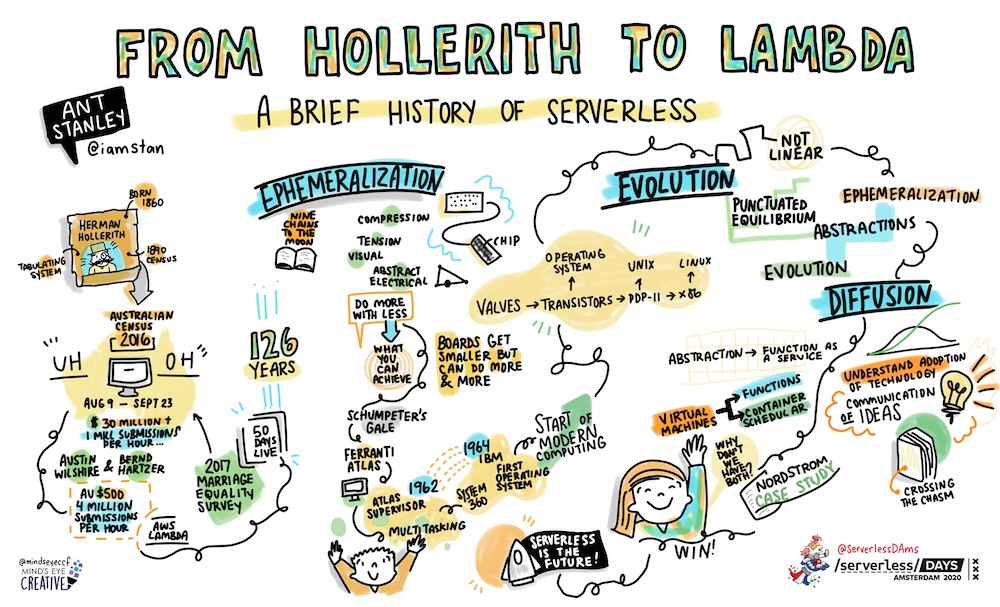 FROM HOLLERITH TO LAMBDA
A BRIEF HISTORY OF SERVERLESS
ANT
STANLEY
@iamstan
BORN
1860
HERMAN
HOLLERITH
TABULATING
SYSTEM
1890
CENSUS
AUSTRALIAN
CENSUS
2016
UH
OH
AUG 9 – SEPT 23
$ 30 MILLION +
1 MILL SUBMISSIONS
PER HOUR...
AUSTIN
WILSHIRE
&
BERND
HARTZER
AU $500
4 MILLION
SUBMISSIONS
PER HOUR
AWS
LAMBDA
2017
MARRIAGE
EQUALITY
SURVEY
50
DAYS
LIVE
126
YEARS
EPHEMERALIZATION
NINE
CHAINS
TO THE
MOON
COMPRESSION
TENSION
VISUAL
ABSTRACT
ELECTRICAL
CHIP
DO MORE
WITH LESS
WHAT
YOU
CAN
ACHIEVE
BOARDS GET
SMALLER BUT
CAN DO MORE
& MORE
SCHUMPETER'S
GALE
FERRANTI
ATLAS
ATLAS
SUPERVISOR
1962
MULTITASKING
1964
IBM
SYSTEM
360
FIRST
OPERATING
SYSTEM
START OF
MODERN
COMPUTING
SERVERLESS
IS THE
FUTURE!
EVOLUTION
NOT
LINEAR
PUNCTUATED
EQUILIBRIUM
EPHEMERALIZATION
ABSTRACTIONS
EVOLUTION
OPERATING
SYSTEM
UNIX
LINUX
VALVES → TRANSISTORS → PDP-11 → x86
DIFFUSION
ABSTRACTION → FUNCTION AS
A SERVICE
VIRTUAL
MACHINES
FUNCTIONS
CONTAINER
SCHEDULAR
WHY
DON'T
WE
HAVE
BOTH?
NORDSTROM
CASE STUDY
WIN!
UNDERSTAND ADOPTION
OF TECHNOLOGY
COMMUNICATION
OF IDEAS
CROSSING
THE CHASM
@mindseyeccf
MIND'S EYE
CREATIVE
@ServerlessDAms
/serverless/ DAYS
AMSTERDAM 2020
XXX